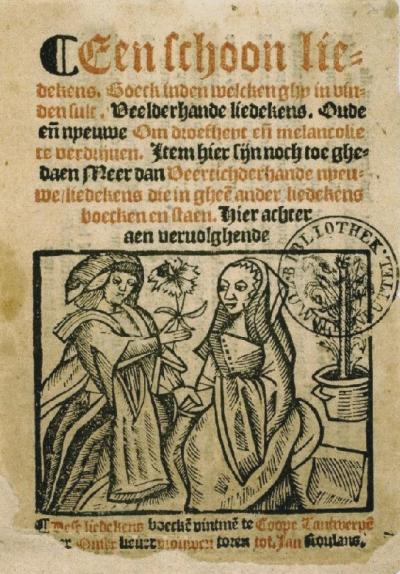 Een schoon lie-
dekens. Boeck inden welcken ghy in vin-
den sult. Veelderhande liedekens. Oude
en̄ nyeuwe Om droefheyt en̄ melancolie
te verdrijuen. Item hier sijn noch toe ghe-
daen Meer dan Veertichderhande nyeu-
we/liedekens die in gheē ander liedekens
boecken en staen. Hier achter
aen veruolghende
BIBLIOTHEK
¶ Dese liedekens boeckē vintmē te Coope Tantwerpē
Onser lieuer vrouwen toren tot Jan Roulans.